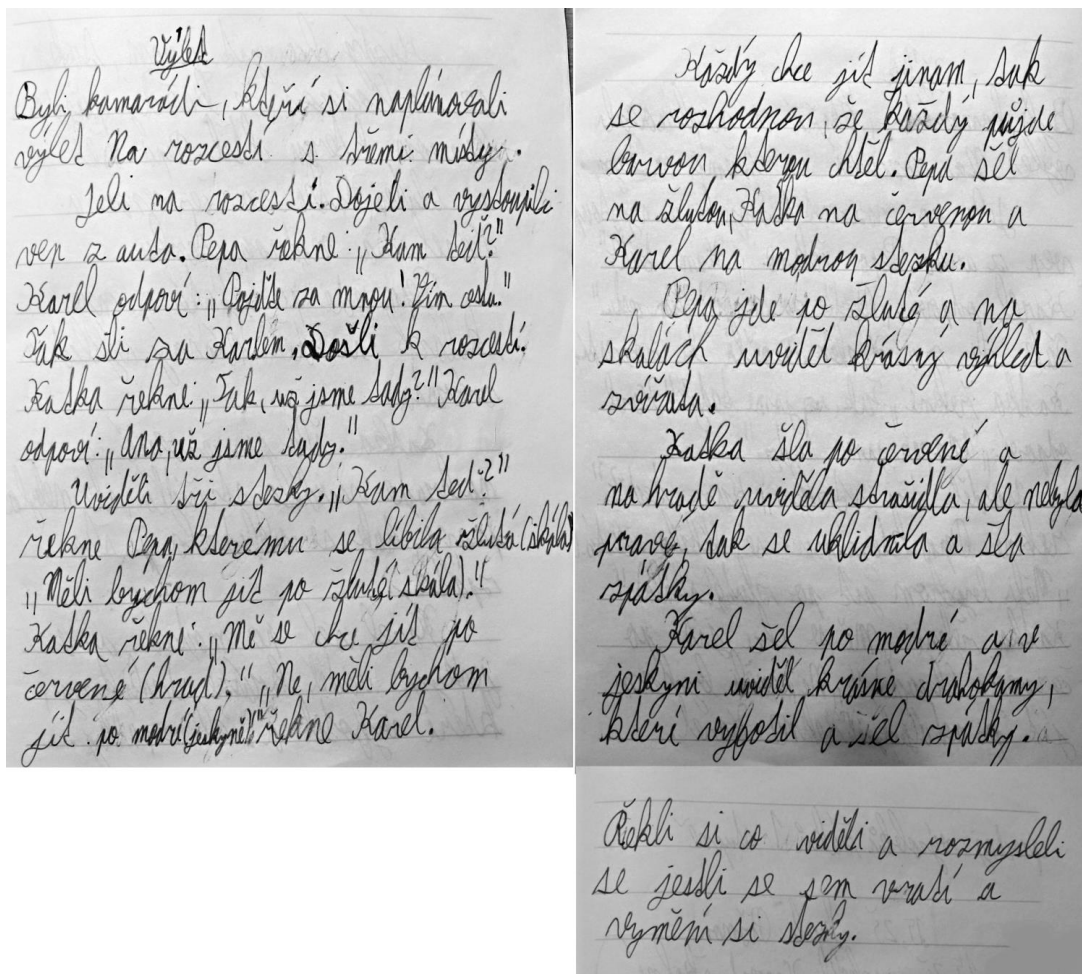 Výlet
Byli kamarádi, kteří si naplánovali
výlet Na rozcestí s třemi místy.
Jeli na rozcestí. Dojeli a vystoupili
ven z auta. Pepa řekne: „Kam teď?"
Karel odpoví: „Pojďte za mnou! Vím cestu."
Tak šli za Karlem. Došli k rozcestí.
Katka řekne: „Tak, už jsme tady?" Karel
odpoví: „Ano, už jsme tady."
Uviděli tři stezky. „Kam teď?"
řekne Pepa, kterému se líbila žlutá (skála)
„Měli bychom jít po žluté (skála)."
Katka řekne: „Mě se chce jít po
červené (hrad)." „Ne, měli bychom
jít po modré (jeskyně)" řekne Karel.
Každý chce jít jinam, tak
se rozhodnou, že každý půjde
barvou, kterou chtěl. Pepa šel
na žlutou, Katka na červenou a
Karel na modrou stezku.
Pepa jde po žluté a na
skalách uviděl krásný výhled a
zvířata.
Katka šla po červené a
na hradě uviděla strašidla, ale nebyla
pravé, tak se uklidnila a šla
zpátky.
Karel šel po modré a v
jeskyni uviděl krásné drahokamy,
kteri vyfotil a šel zpátky.
Řekli si co viděli a rozmysleli
se jestli se sem vratí a
vymění si stezky.